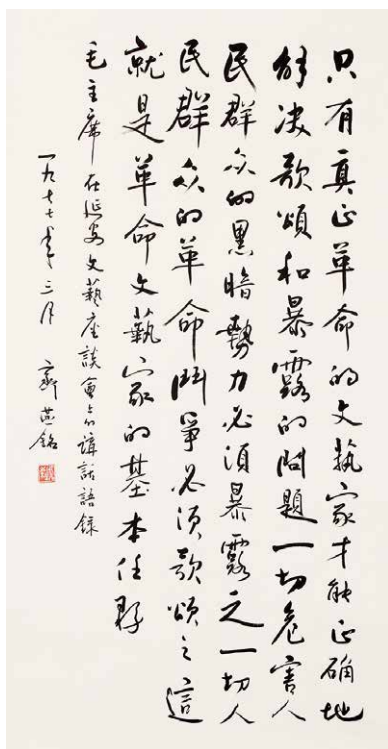 只有真正革命的文艺家才能正确地
解决歌颂和暴露的问题一切危害人
民群众的黑暗势力必须暴露之一切人
民群众的革命鬥爭必须歌颂之這
就是革命文藝家的基本任務
毛主席在延安文藝座談會上的講話語録
一九七七年三月 齊燕銘